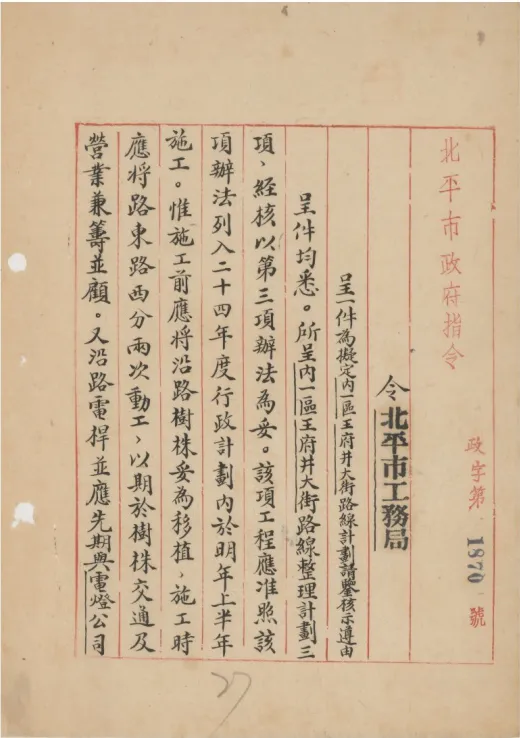 北平市政府指令
政字第1870號
令北平市工務局
呈一件為擬定內一區王府井大街路線計劃請鑒核示遵由
呈件均悉。所呈內一區王府井大街路線整理計劃三
項、經核以第三項辦法為妥。該項工程應准照該
項辦法列入二十四年度行政計劃內於明年上半年
施工。惟施工前應將沿路樹株妥為移植、施工時
應將路東路西分兩次動工、以期於樹株交通及
營業兼籌並顧。又沿路電桿並應先期與電燈公司
27